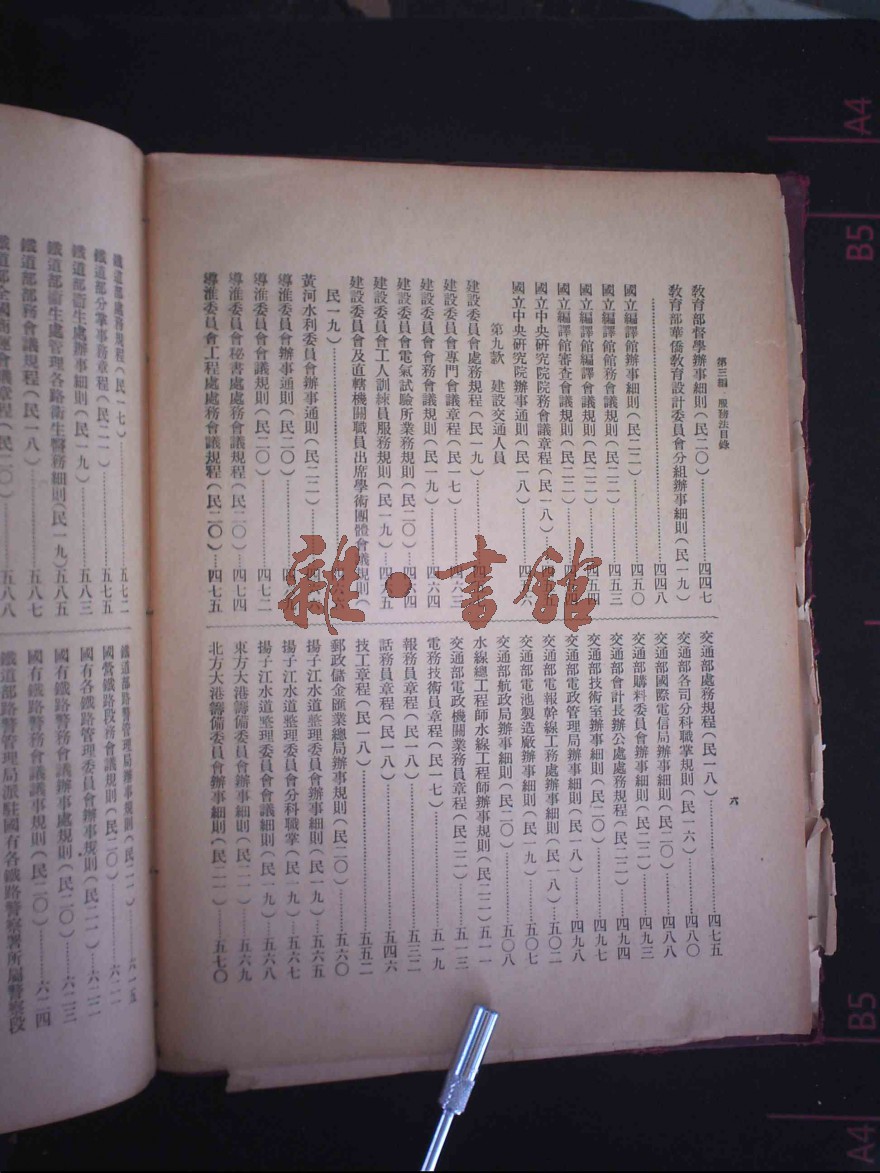 第三編　服務法目錄
六
教育部督學辦事細則(民二〇)…………四四七
教育部華僑教育設計委員會分組辦事細則(民一九)
…………四四八
國立編譯館辦事細則(民二二)…………四五〇
國立編譯館館務會議規則(民二二)…………四五三
國立編譯館編譯會議規則(民二二)…………四五四
國立編譯館審查會議規則(民二二)…………
國立中央研究院院務會議章程(民一八)…………
國立中央研究院辦事通則(民一八)…………
第九款　建設交通人員
建設委員會處務規程(民一九)…………
建設委員會專門會議章程(民一七)…………四六三
建設委員會會務會議規則(民一九)…………四六四
建設委員會電氣試驗所業務規則(民二〇)…………四六四
建設委員會工人訓練員服務規則(民一九)…………四六五
建設委員會及直轄機關職員出席學術團體會議規則(
民一九)…………
黃河水利委員會辦事通則(民二二)…………
導淮委員會辦事通則(民二〇)…………
導淮委員會會議規則(民二〇)…………四七二
導淮委員會秘書處處務會議規程(民二〇)…………四七四
導淮委員會工程處處務會議規程(民二〇)…四七五
交通部處務規程(民一八)…………四七五
交通部各司分科職掌規則(民一六)…………四八〇
交通部國際電信局辦事細則(民二〇)…………四八八
交通部購料委員會辦事細則(民二二)…………四九三
交通部會計長辦公處處務規程(民二二)…………四九四
交通部技術室辦事細則(民二〇)…………四九七
交通部電政管理局辦事細則(民一八)…………四九八
交通部電報幹線工務處辦事細則(民一八)…………五〇二
交通部電池製造廠辦事細則(民一九)…………五〇七
交通部航政局辦事細則(民二〇)…………五〇八
水線總工程師水線工程師辦事規則(民二二)…五一一
交通部電政機關業務員章程(民二二)…………五一三
電務技術員章程(民一七)…………五一九
報務員章程(民一八)…………五三二
話務員章程(民一八)…………五四六
技工章程(民一八)…………五五二
郵政儲金匯業總局辦事規則(民二〇)…………五六〇
揚子江水道整理委員會辦事細則(民一九)…………五六五
揚子江水道整理委員會分科職掌(民一九)…………五六七
揚子江水道整理委員會會議細則(民一九)…………五六八
東方大港籌備委員會辦事細則(民二一)…………五六九
北方大港籌備委員會辦事細則(民二一)…………五七〇
鐵道部處務規程(民一七)…………五七二
鐵道部分掌事務章程(民二一)…………五七五
鐵道部衛生處辦事細則(民一九)…………五八三
鐵道部衛生處管理各路衛生醫務細則(民一九)五八五
鐵道部部務會議規程(民一八)…………五八七
鐵道部全國商運會議章程(民二〇)…………五八八
鐵道部路警管理局辦事規則(民二一)…………
國營鐵路段務會議規則(民二〇)…………
國有各鐵路管理委員會辦事規則(民二一)…………六二二
國有鐵路警務會議辦事處規則(民二〇)…………六二三
國有鐵路警務會議議事規則(民二〇)…………六二四
鐵道部路警管理局派駐國有各鐵路警察署所屬警察段
雜·書館
A4
B5
B5
A4